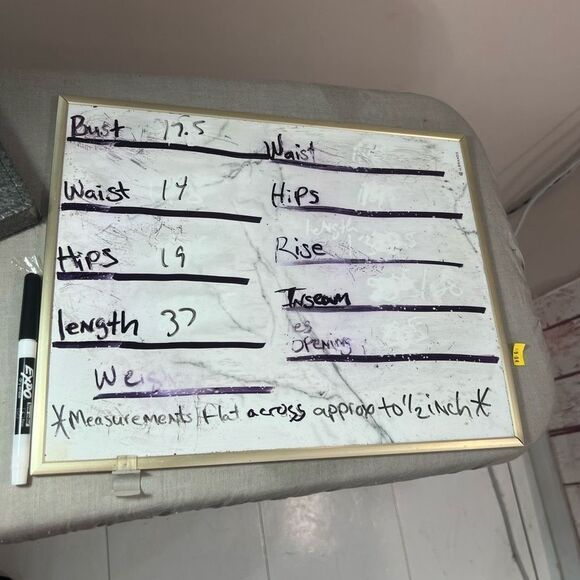 Bust 17.5
Waist 14
Hips 19
length 37
Waist
Hips
Rise
Inseam
opening
*Measurements flat across approx to 1/2 inch*
EXPO